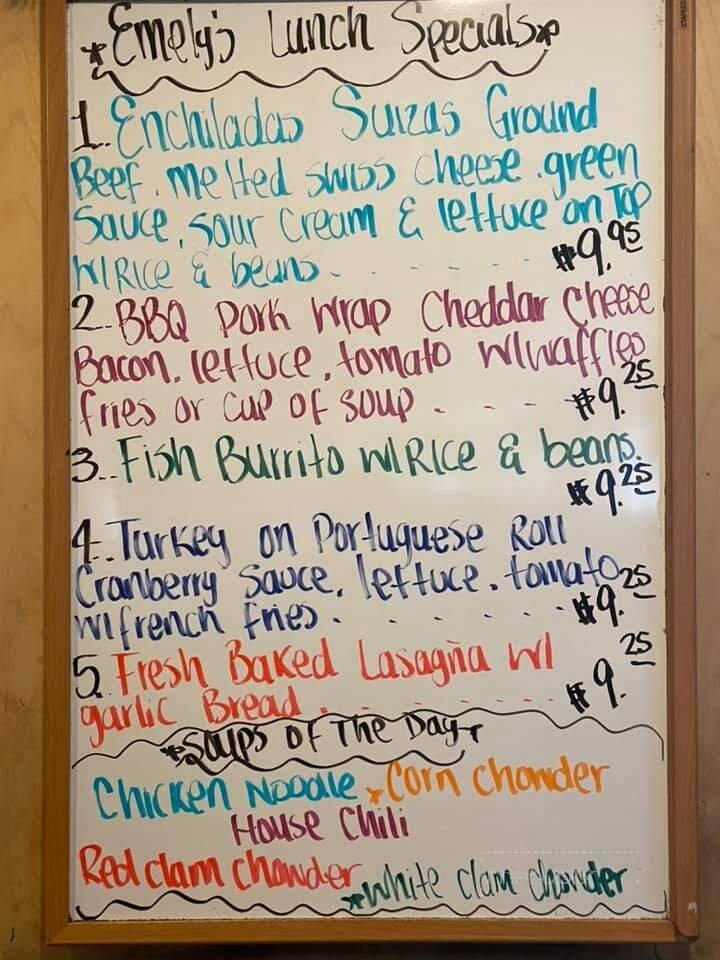 *Emely's Lunch Specials*
1. Enchiladas Suizas Ground
Beef, melted swiss cheese, green
Sauce, sour cream & lettuce on Top
w/Rice & beans - - - - - - $9.95
2. BBQ Pork Wrap Cheddar Cheese
Bacon, lettuce, tomato w/waffles
fries or cup of soup . - - - $9.25
3. Fish Burrito w/Rice & beans.
$9.25
4. Turkey on Portuguese Roll
Cranberry Sauce, lettuce, tomato
w/french fries . - - - - - - $9.25
5. Fresh Baked Lasagña w/
garlic Bread . - - - - - - $9.25
*Soups Of The Day*
Chicken Noodle *Corn chowder
House Chili
Red clam chowder
*White clam chowder